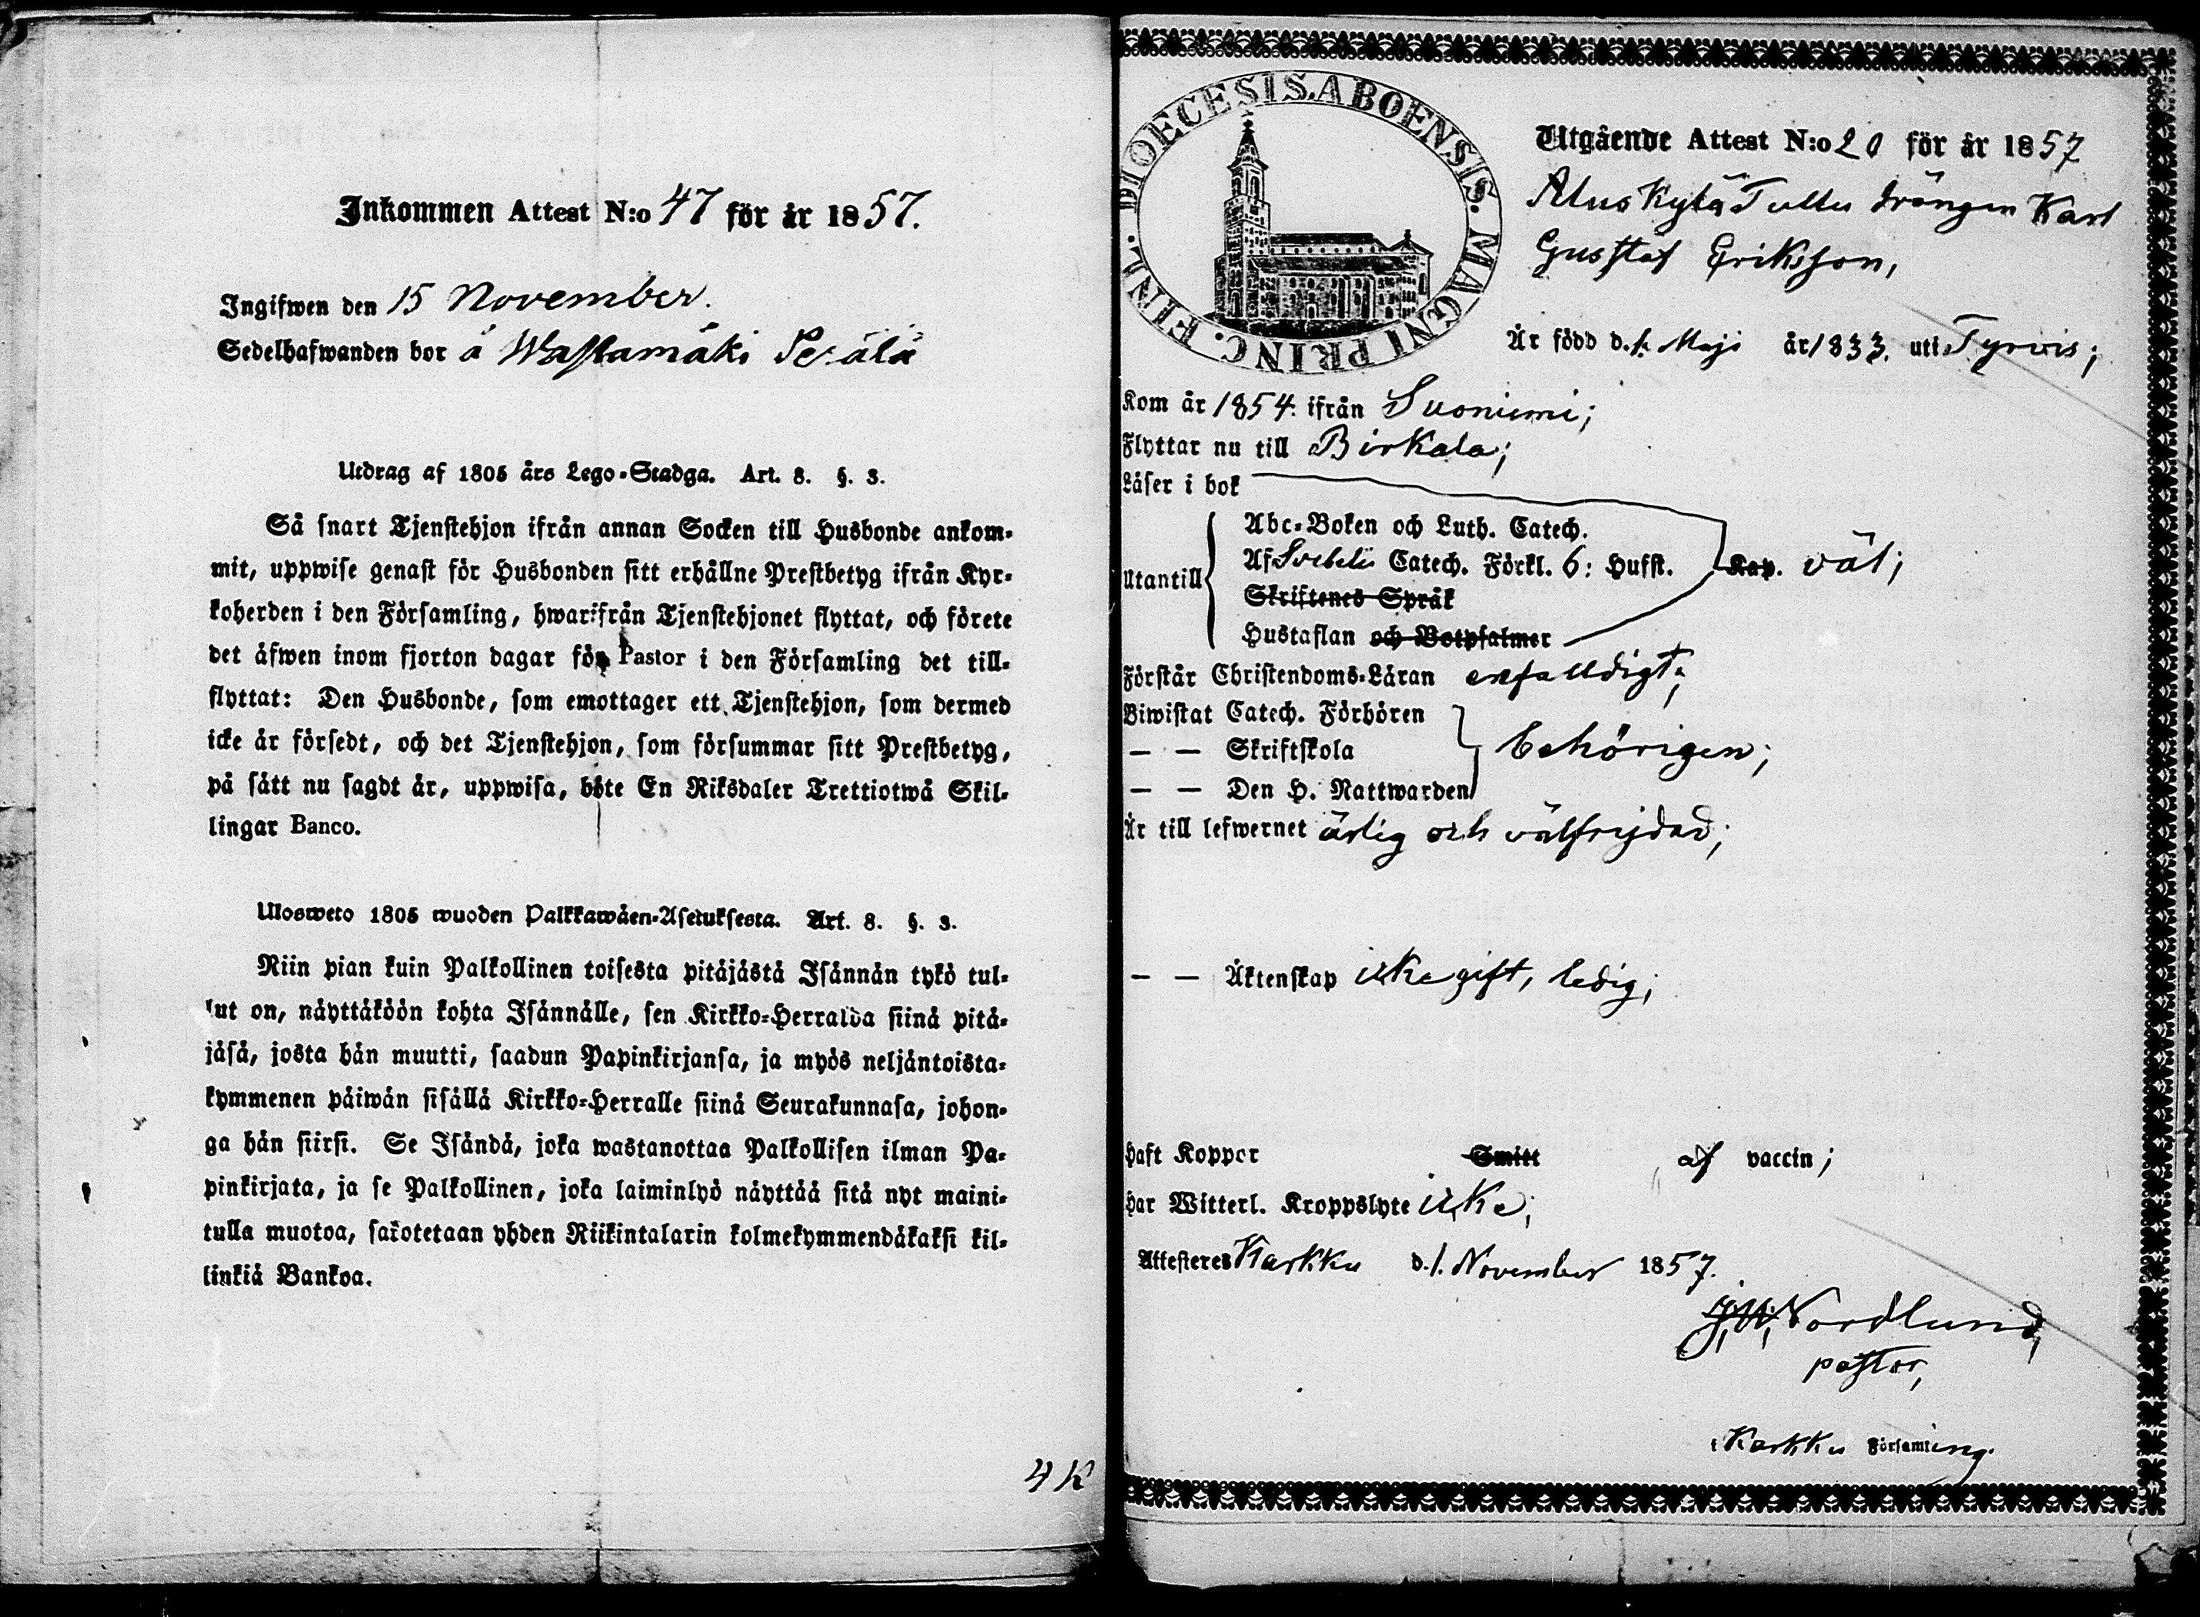 Inkommen Attest N:o 47 för år 1857.
Ingifwen den 15 November.
Sedelhafwanden bor å Wastamäki
Utdrag af 1805 års Lego-Stadga. Art. 8. §. 3.
Så snart Tjenstehjon ifrån annan Socken till Husbonde ankom-
mit, uppwise genast för Husbonden sitt erhållne Prestbetyg ifrån Kyr-
koherden i den Församling, hwarifrån Tjenstehjonet flyttat, och förete
det äfwen inom fjorton dagar för Pastor i den Församling det till-
flyttat: Den Husbonde, som emottager ett Tjenstehjon, som dermed
icke är försedt, och det Tjenstehjon, som försummar sitt Prestbetyg,
på sätt nu sagdt är, uppwisa, böte En Riksdaler Trettiotwå Skil-
lingar Banco.
Ulosweto 1805 wuoden Palkkawäen-Asetuksesta. Art. 8. §. 3.
Niin pian kuin Palkollinen toisesta pitäjästä Isännän tykö tul-
lut on, näyttäköön kohta Isännälle, sen Kirkko-Herralda siinä pitä-
jäsä, josta hän muutti, saadun Papinkirjansa, ja myös neljäntoista-
kymmenen päiwän sisällä Kirkko-Herralle siinä Seurakunnasa, johon-
ga hän siirsi. Se Isändä, joka wastanottaa Palkollisen ilman Pa-
pinkirjata, ja se Palkollinen, joka laiminlyö näyttää sitä nyt maini-
tulla muotoa, sakotetaan yhden Riikintalarin kolmekymmendäkaksi kil-
linkiä Bankoa.
4 K
DIOECESIS. ABOENSIS. MAGNI PRINC. FINL.
Utgående Attest N:o 20 för år 1857
Aluskylä Tullu drängen Karl
Gustaf Eriksson,
Är född d. 1. Maji år 1833. uti Tyrvis;
Kom år 1854. ifrån Suoniemi;
Flyttar nu till Birkala;
Läser i bok
Utantill
Abc-Boken och Luth. Catech.
Af Svebelii Catech. Förkl. 6: Hufst. Kap. väl;
Skriftenes Språk
Hustaflan och Botpsalmer
Förstår Christendoms-Läran enfalldigt;
Biwistat Catech. Förhören
— — Skriftskola behörigen;
— — Den H. Nattwarden
Är till lefwernet ärlig och välfrejdad;
— — Äktenskap icke gift, ledig;
Haft Koppor Smitt af vaccin;
Har Witterl. Kroppslyte icke;
Attesteres Karkku d. 1. November 1857.
J.W. Nordlund,
pastor,
i Karkku Församling.